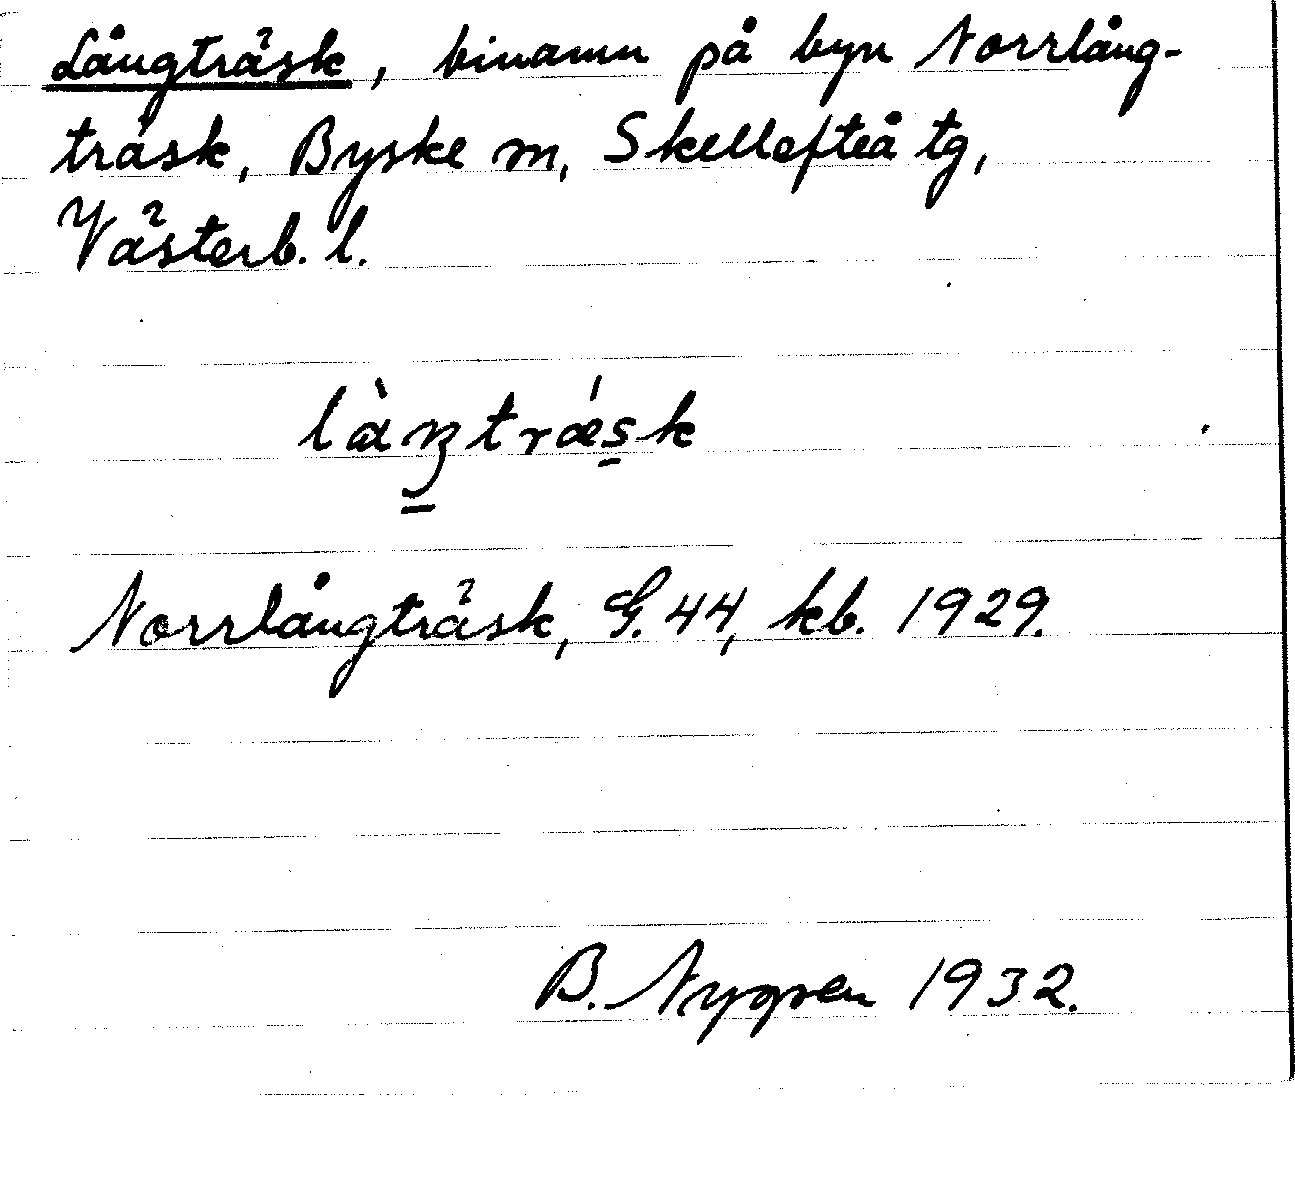 Långträsk, binamn på byn Norrlång-
träsk, Byske m, Skellefteå tg,
Västerb. l.
làŋtrǽs̱k
Norrlångträsk, G. 44, kb. 1929.
B. Nygren 1932.